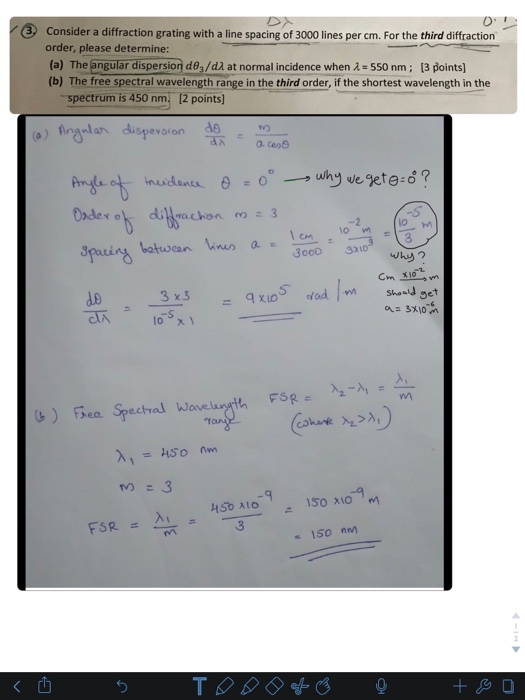 Dλ
0.1
3. Consider a diffraction grating with a line spacing of 3000 lines per cm. For the third diffraction
order, please determine:
(a) The angular dispersion dθ₃/dλ at normal incidence when λ = 550 nm ; [3 points]
(b) The free spectral wavelength range in the third order, if the shortest wavelength in the
spectrum is 450 nm. [2 points]
(a) Angular dispersion dθ/dλ = m/(a cosθ)
Angle of incidence θ = 0° → why we get θ=0°?
Order of diffraction m = 3
Spacing between lines a = 1 cm/3000 = 10⁻² m/3x10³ = 10⁻⁵/3 m
why?
cm x10⁻²→ m
should get
a = 3x10⁻⁶ m
dθ/dλ = 3 x 3/(10⁻⁵ x 1) = 9 x10⁵ rad/m
(b) Free Spectral Wavelength range FSR = λ₂-λ₁ = λ₁/m
(where λ₂>λ₁)
λ₁ = 450 nm
m = 3
FSR = λ₁/m = 450 x10⁻⁹/3 = 150 x10⁻⁹ m
= 150 nm
T